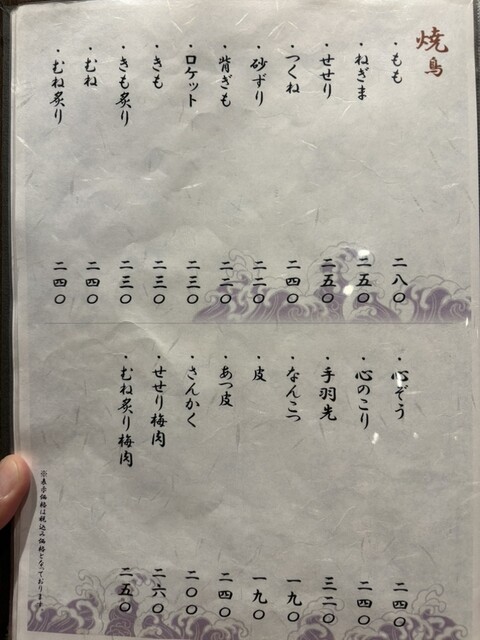 焼鳥
・もも 二八〇
・ねぎま 二五〇
・せせり 二五〇
・つくね 二四〇
・砂ずり 二二〇
・背ぎも 二二〇
・ロケット 二三〇
・きも 二三〇
・きも炙り 二三〇
・むね 二四〇
・むね炙り 二四〇
・心ぞう 二四〇
・心のこり 二四〇
・手羽先 三二〇
・なんこつ 一九〇
・皮 一九〇
・あつ皮 二四〇
・さんかく 二〇〇
・せせり梅肉 二六〇
・むね炙り梅肉 二五〇
※表示価格は税込み価格となっております。